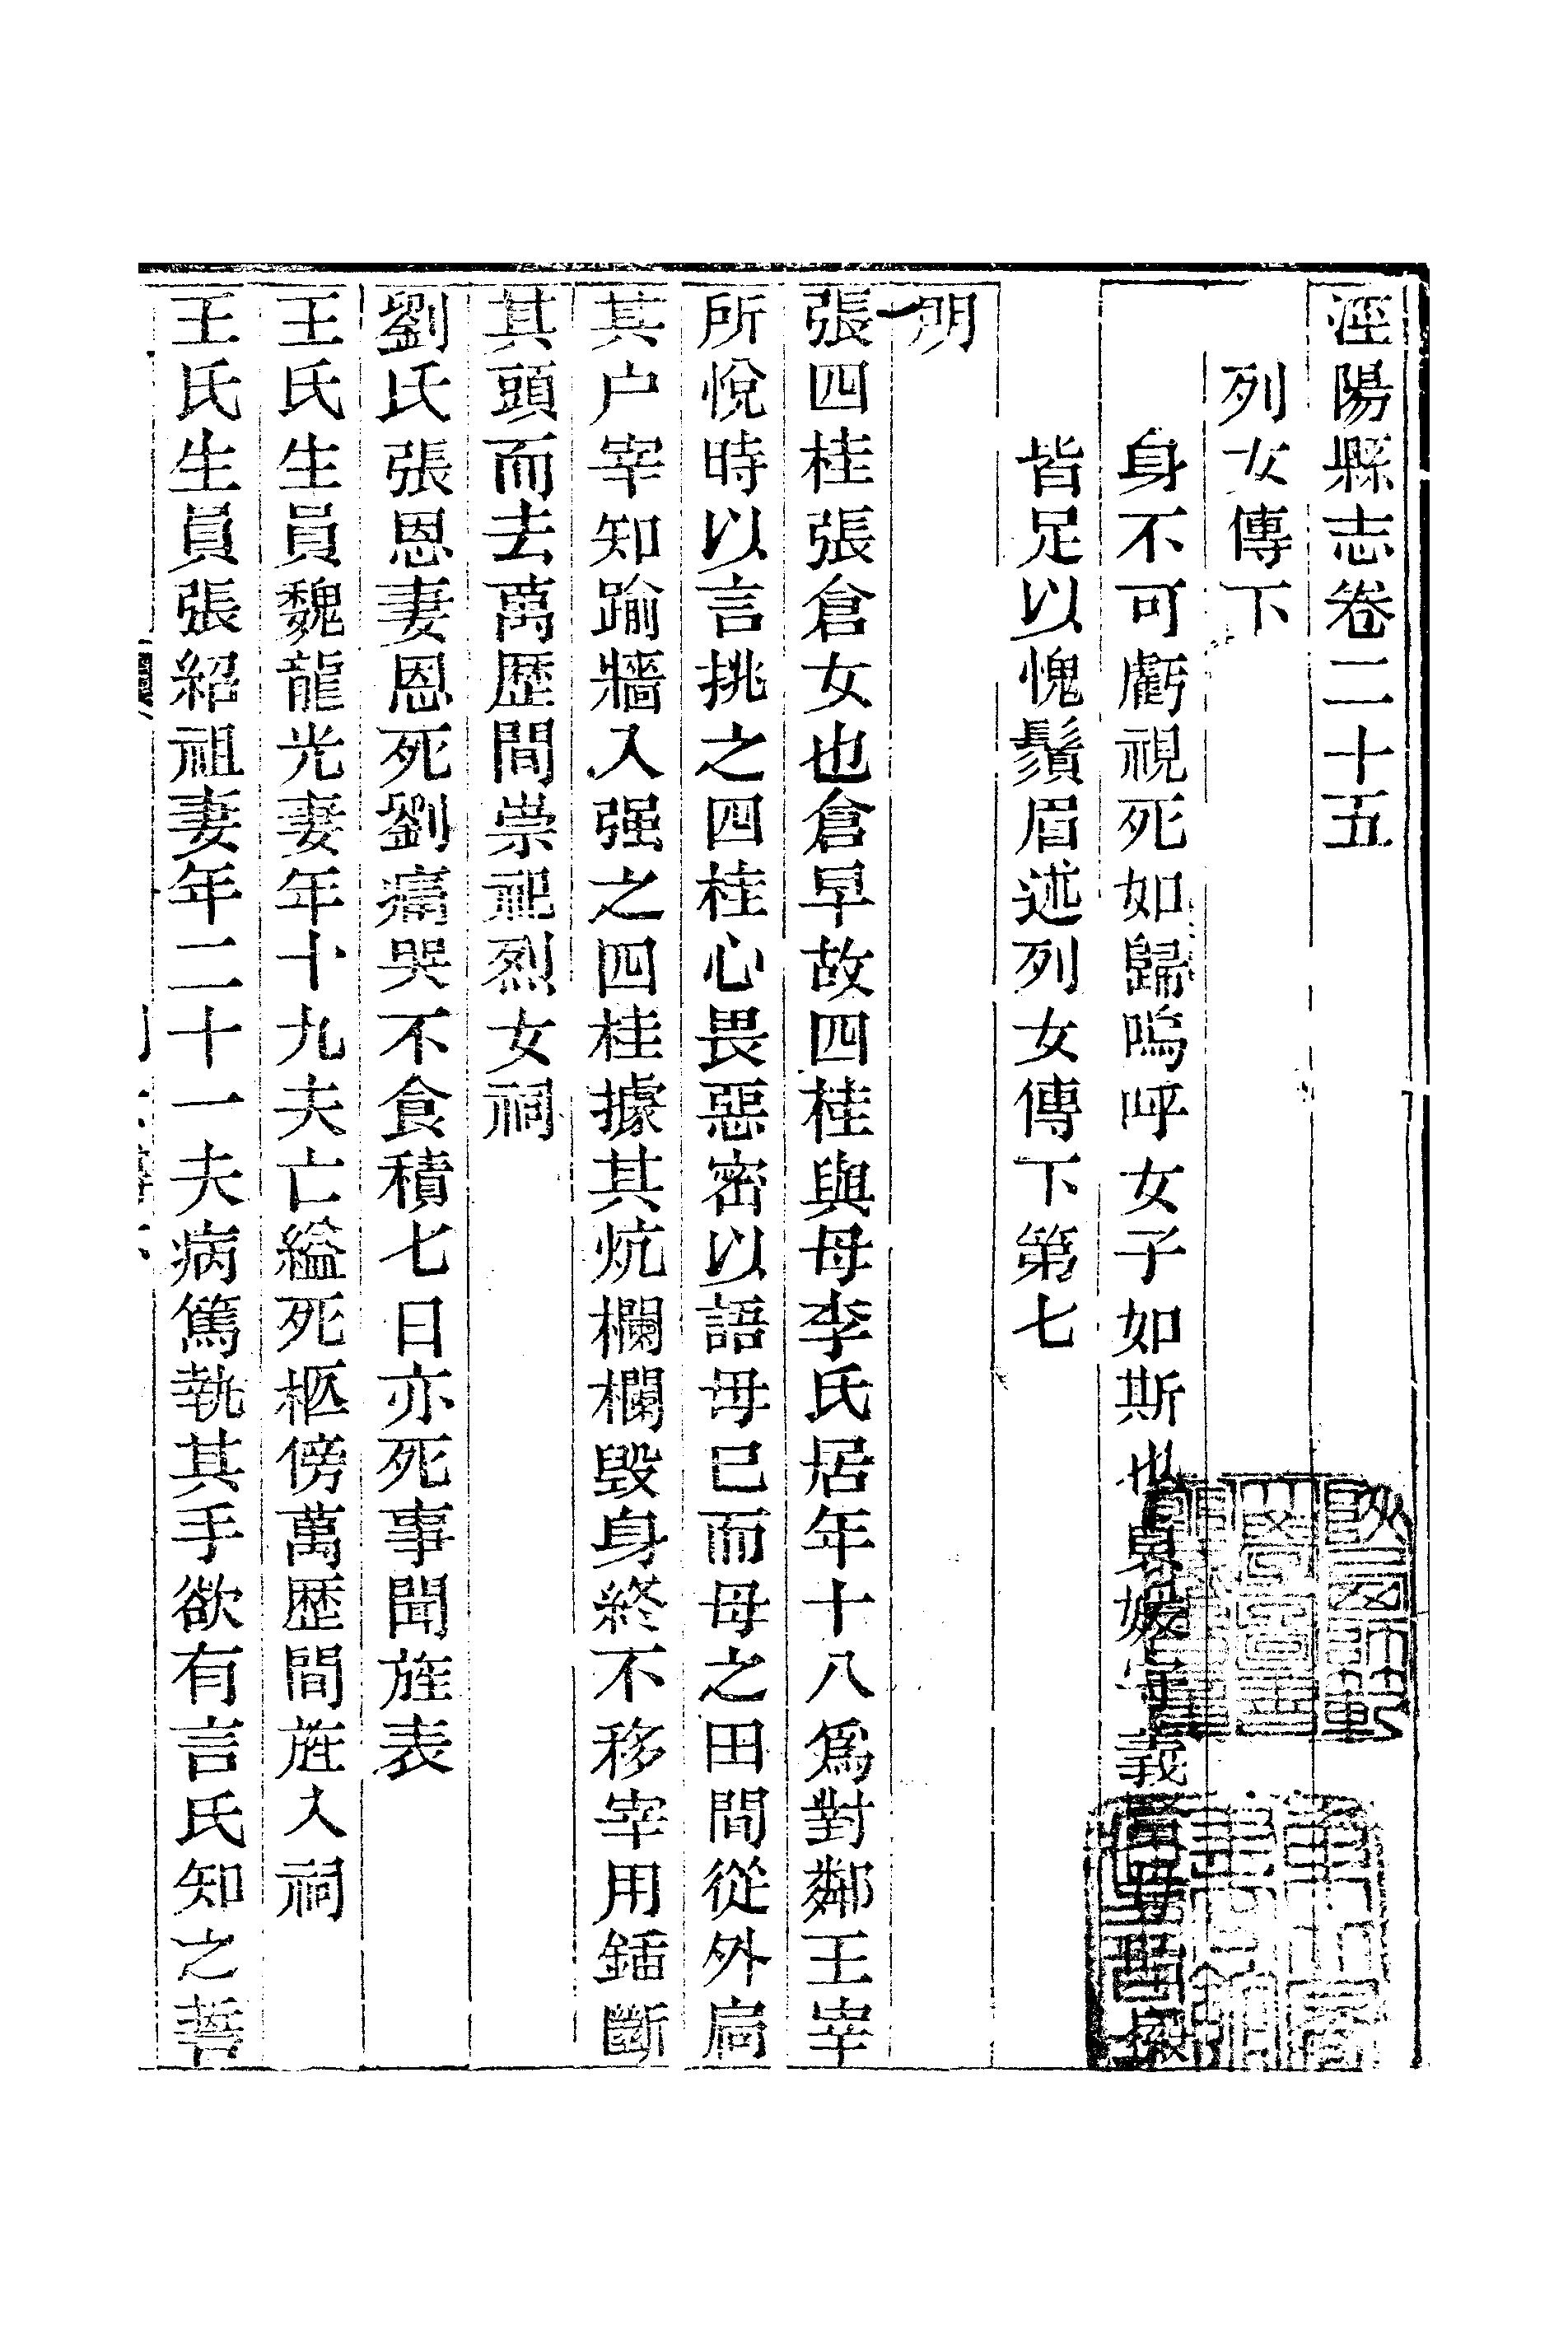 涇陽縣志卷二十五
列女傳下
身不可虧視死如歸嗚呼女子如斯也魯姬守義
皆足以愧鬚眉述列女傳下第七
明
張四桂張倉女也倉早故四桂與母李氏居年十八爲對鄰王宰
所悅時以言挑之四桂心畏惡密以語母已而母之田間從外扃
其户宰知踰牆入强之四桂據其炕欄欄毀身終不移宰用鍤斷
其頭而去萬歷間崇祀烈女祠
劉氏張恩妻恩死劉痛哭不食積七日亦死事聞旌表
王氏生員魏龍光妻年十九夫亡縊死柩傍萬歷間旌入祠
王氏生員張紹祖妻年二十一夫病篤執其手欲有言氏知之誓